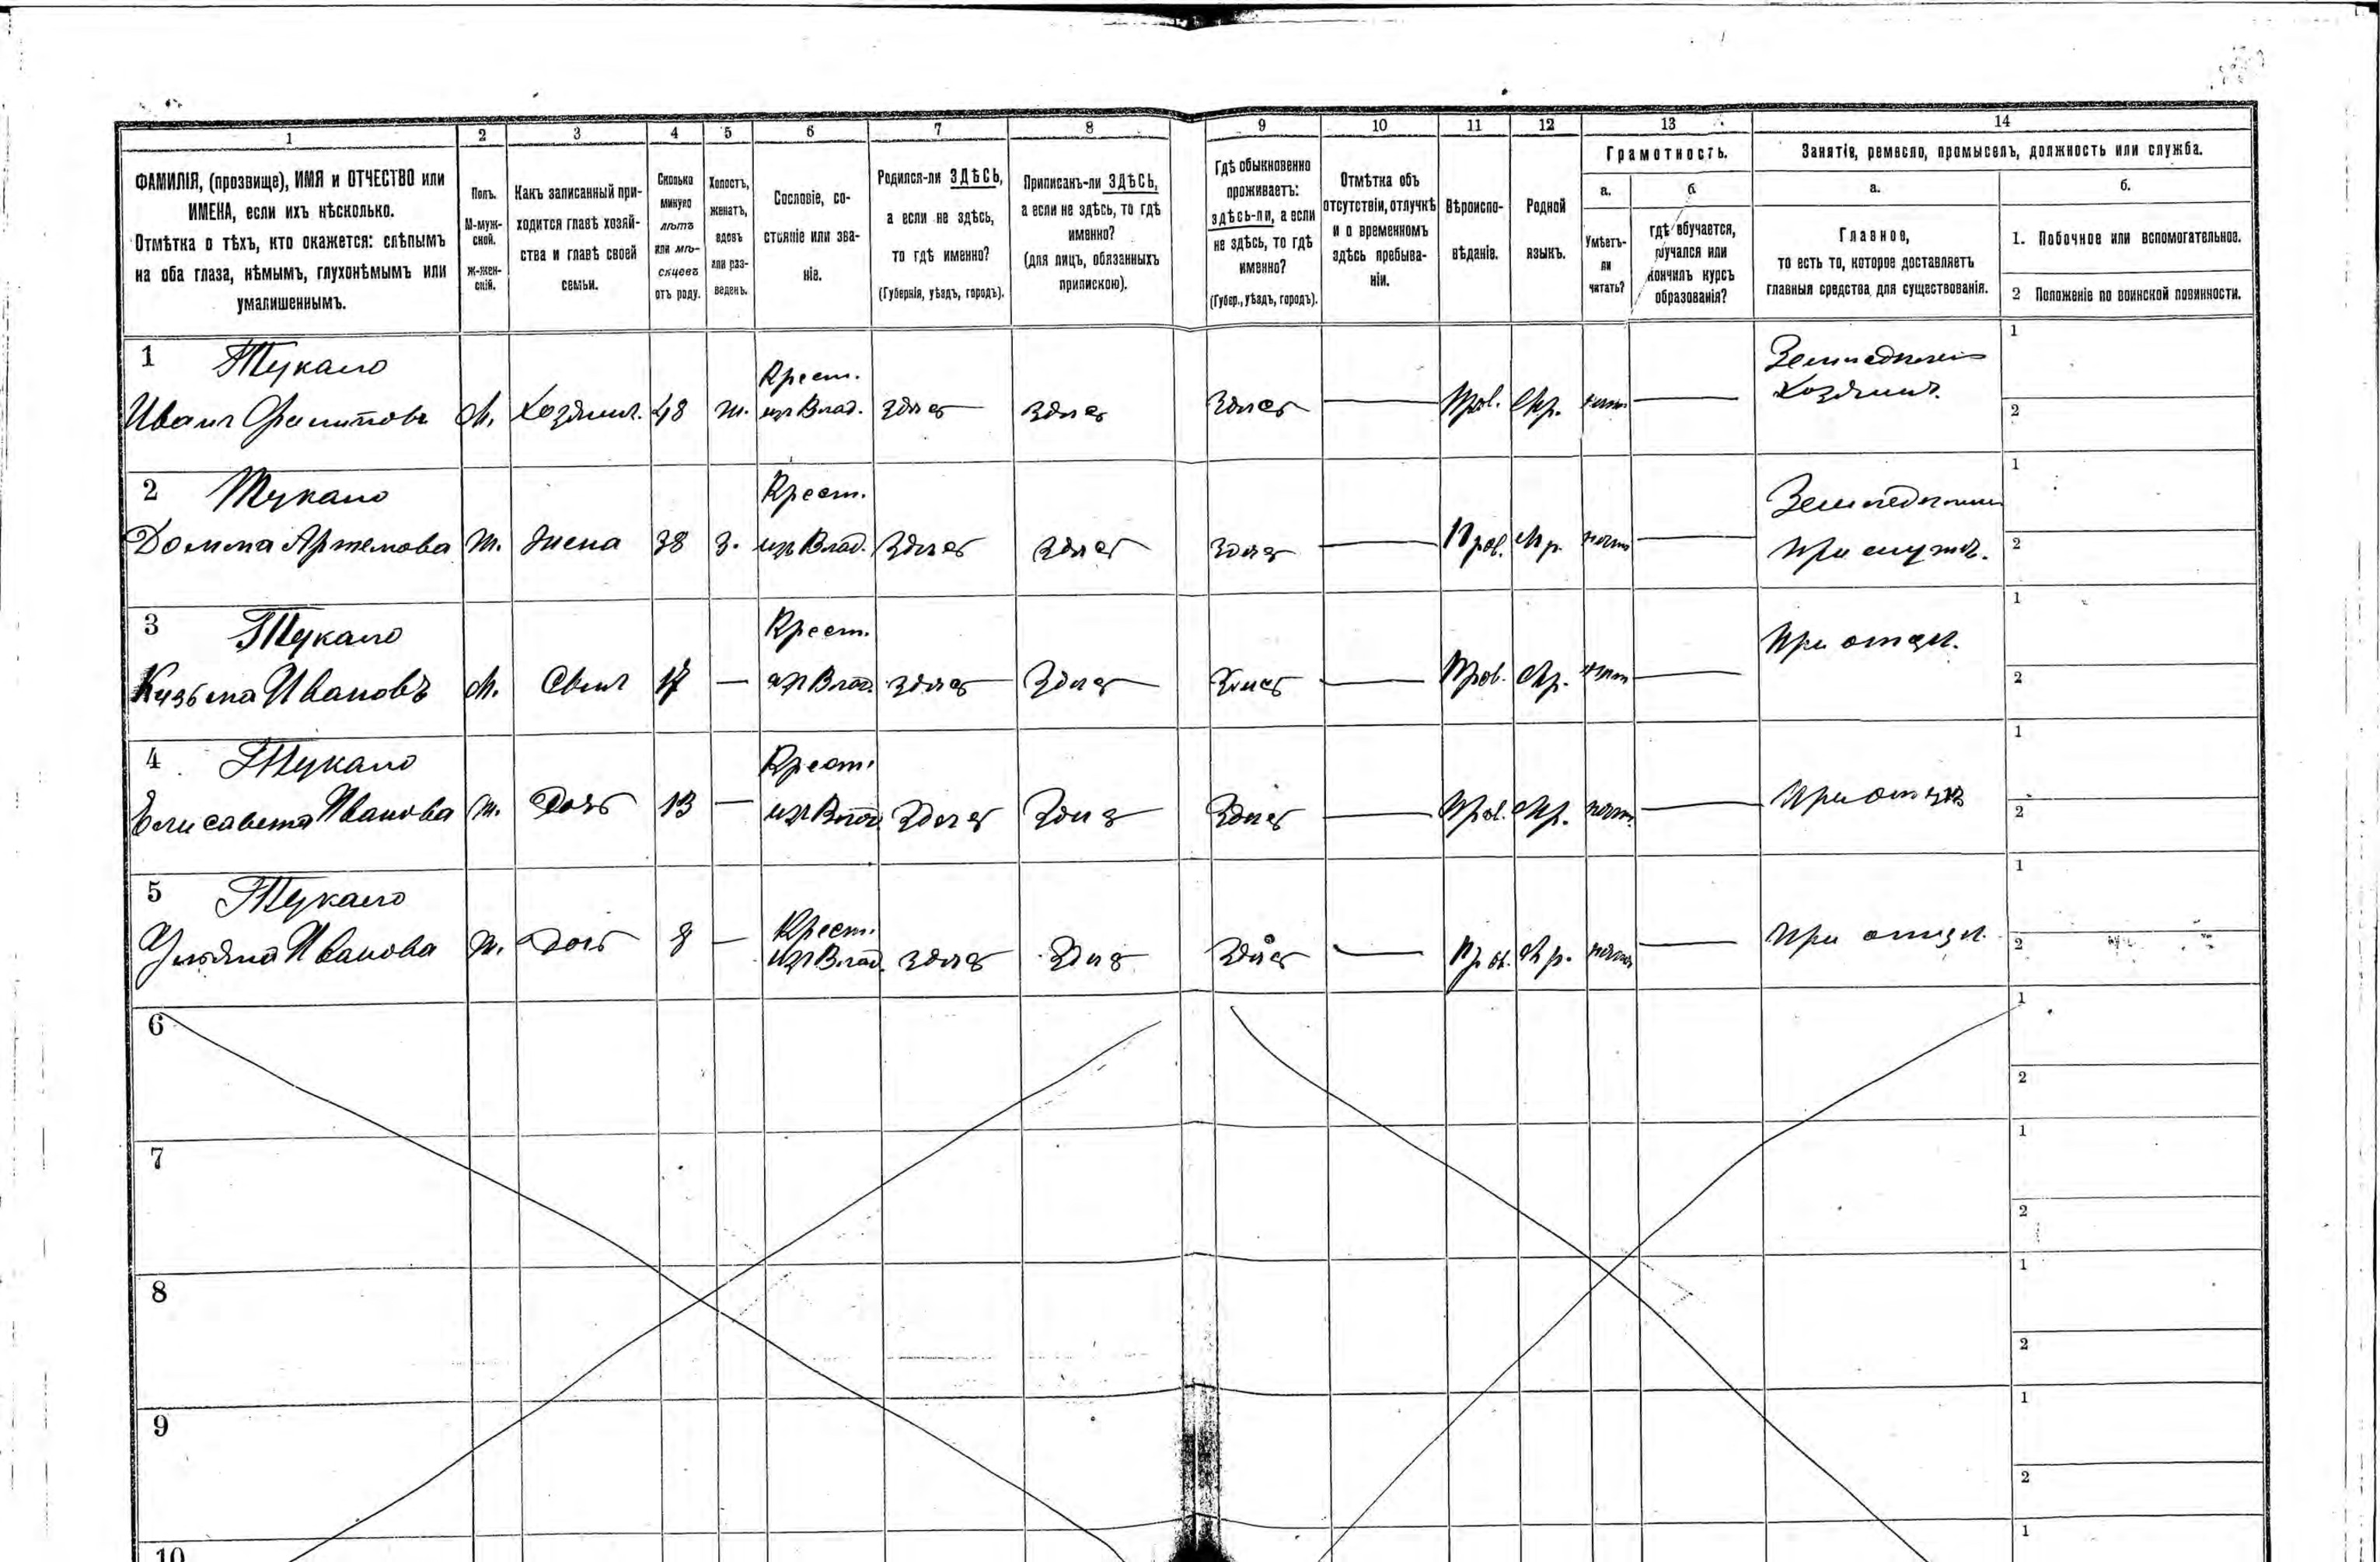 1 2 3 4 5 6 7 8 9 10 11 12 13 14
ФАМИЛІЯ, (прозвище), ИМЯ и ОТЧЕСТВО или
ИМЕНА, если ихъ нѣсколько.
Отмѣтка о тѣхъ, кто окажется: слѣпымъ
на оба глаза, нѣмымъ, глухонѣмымъ или
умалишеннымъ.
Полъ.
М-муж-
ской.
Ж-жен-
скій.
Какъ записанный при-
ходится главѣ хозяй-
ства и главѣ своей
семьи.
Сколько
минуло
лѣтъ
или мѣ-
сяцевъ
отъ роду.
Холостъ,
женатъ,
вдовъ
или раз-
веденъ.
Сословіе, со-
стояніе или зва-
ніе.
Родился-ли ЗДѢСЬ,
а если не здѣсь,
то гдѣ именно?
(Губернія, уѣздъ, городъ).
Приписанъ-ли ЗДѢСЬ,
а если не здѣсь, то гдѣ
именно?
(для лицъ, обязанныхъ
припискою).
Гдѣ обыкновенно
проживаетъ:
здѣсь-ли, а если
не здѣсь, то гдѣ
именно?
(Губер., уѣздъ, городъ).
Отмѣтка объ
отсутствіи, отлучкѣ
и о временномъ
здѣсь пребыва-
ніи.
Вѣроиспо-
вѣданіе.
Родной
языкъ.
Грамотность.
а.
Умѣетъ-
ли
читать?
б.
гдѣ обучается,
обучался или
кончилъ курсъ
образованія?
Занятіе, ремесло, промыселъ, должность или служба.
а.
Главное,
то есть то, которое доставляетъ
главныя средства для существованія.
б.
1. Побочное или вспомогательное.
2 Положеніе по воинской повинности.
1 Тукало Крест. Земледѣліе 1
Иванъ Филиповъ М. Хозяинъ. 48 ж. изъ Влад. здѣсь здѣсь здѣсь — Прав. Мр. нѣтъ — Хозяинъ. 2
2 Тукало Крест. Земледѣліе 1
Домна Артемова ж. жена 38 з. изъ Влад. здѣсь здѣсь здѣсь — Прав. Мр. нѣтъ — при мужѣ. 2
3 Тукало Крест. При отцѣ. 1
Кузьма Ивановъ М. Сынъ 17 — изъ Влад. здѣсь здѣсь здѣсь — Прав. Мр. нѣтъ — 2
4 Тукало Крест. При отцѣ 1
Елисавета Иванова ж. Дочь 13 — изъ Влад. здѣсь здѣсь здѣсь — Прав. Мр. нѣтъ — 2
5 Тукало Крест. При отцѣ. 1
Ульяна Иванова ж. Дочь 8 — изъ Влад. здѣсь здѣсь здѣсь — Прав. Мр. нѣтъ — 2
6 1
2
7 1
2
8 1
2
9 1
2
10 1